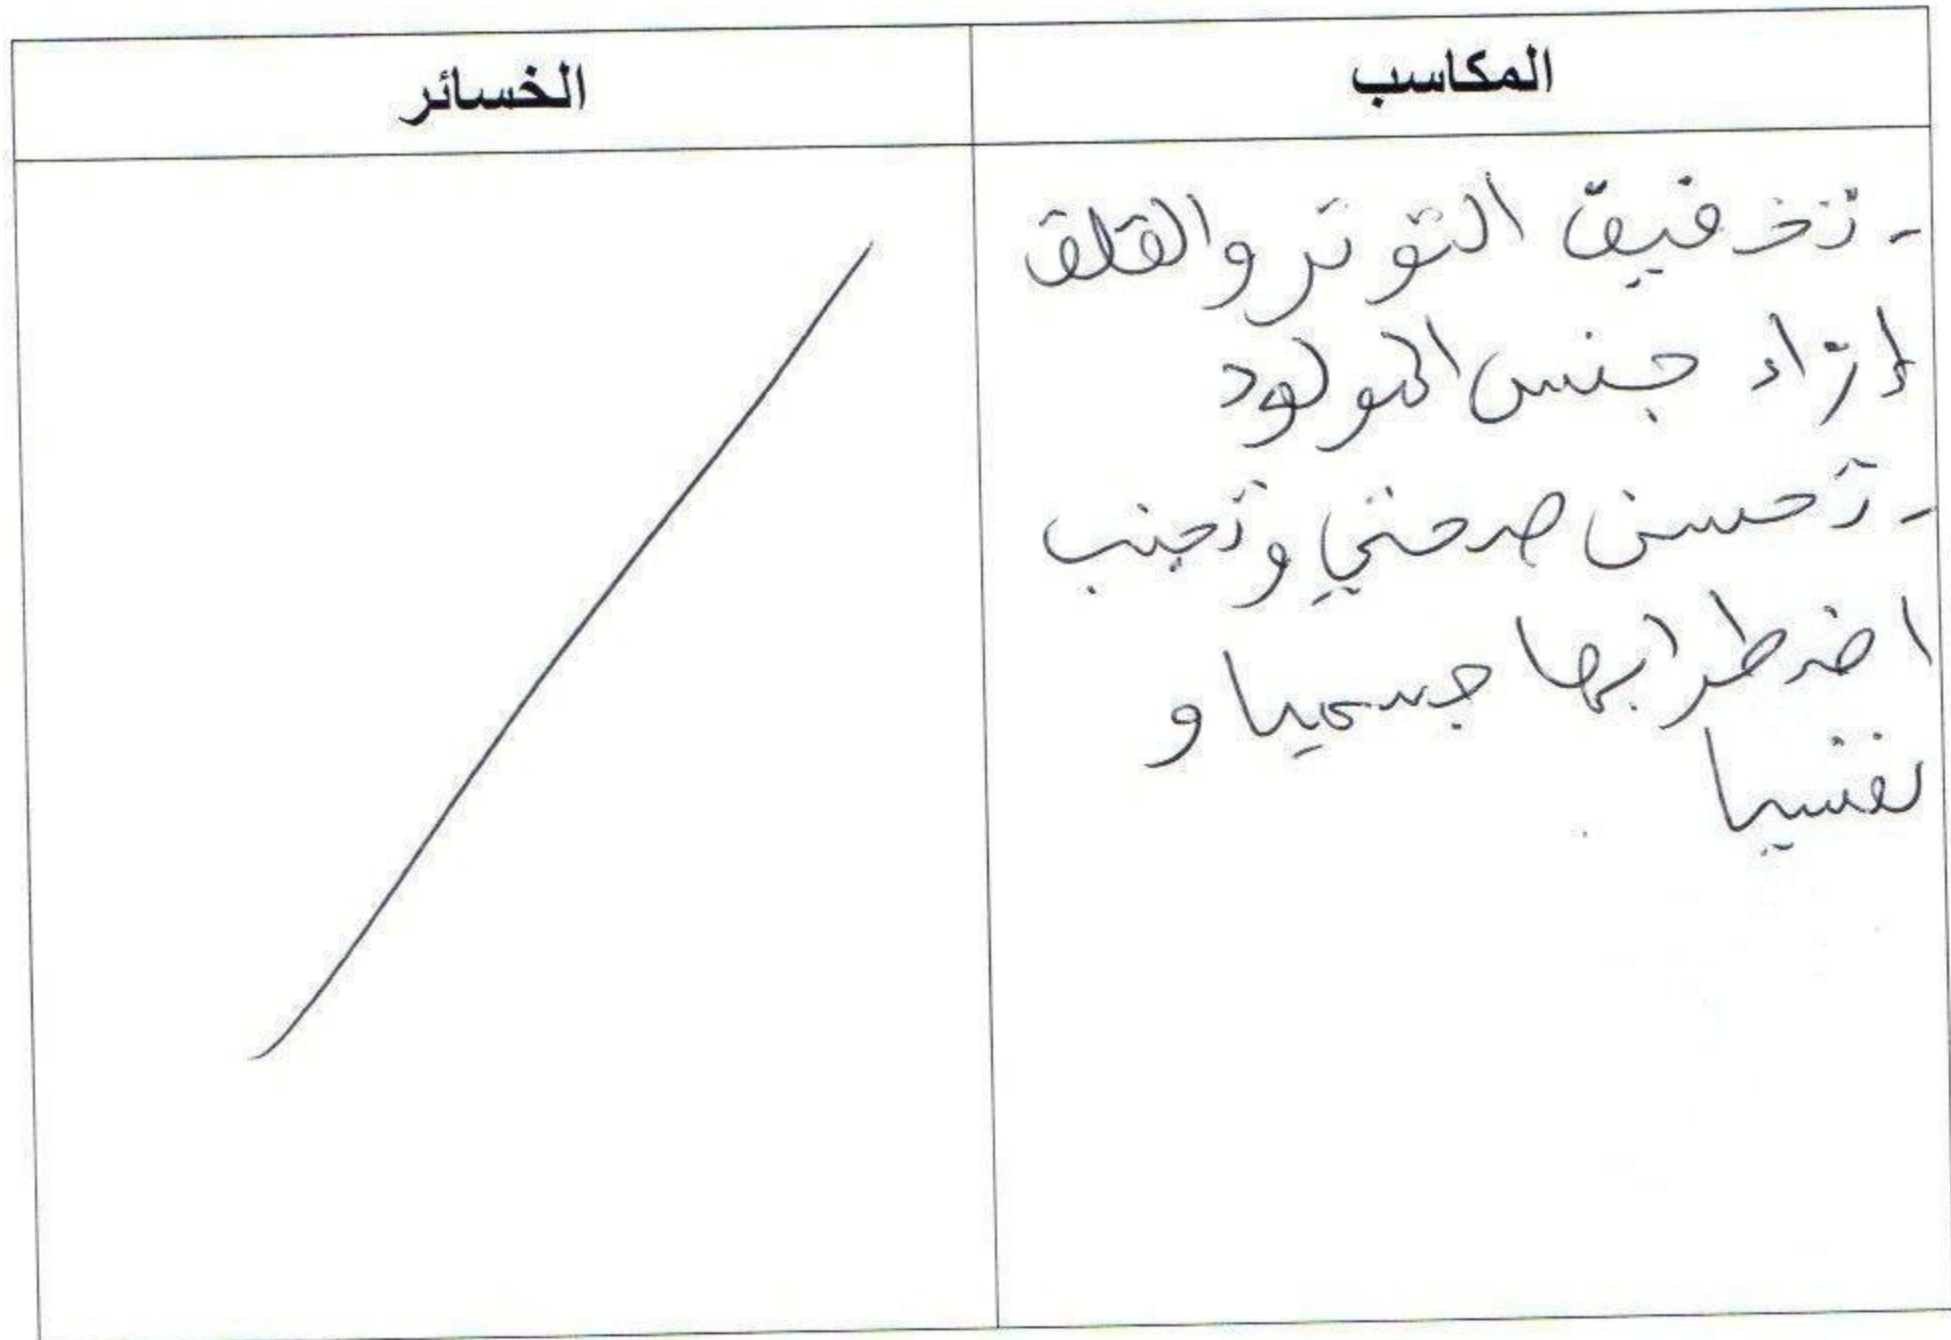 المكاسب
الخسائر
- تخفيف التوتر والقلق
إزاء جنس المولود
- تحسن صحتي وتجنب
اضطرابها جسميا و
نفسيا